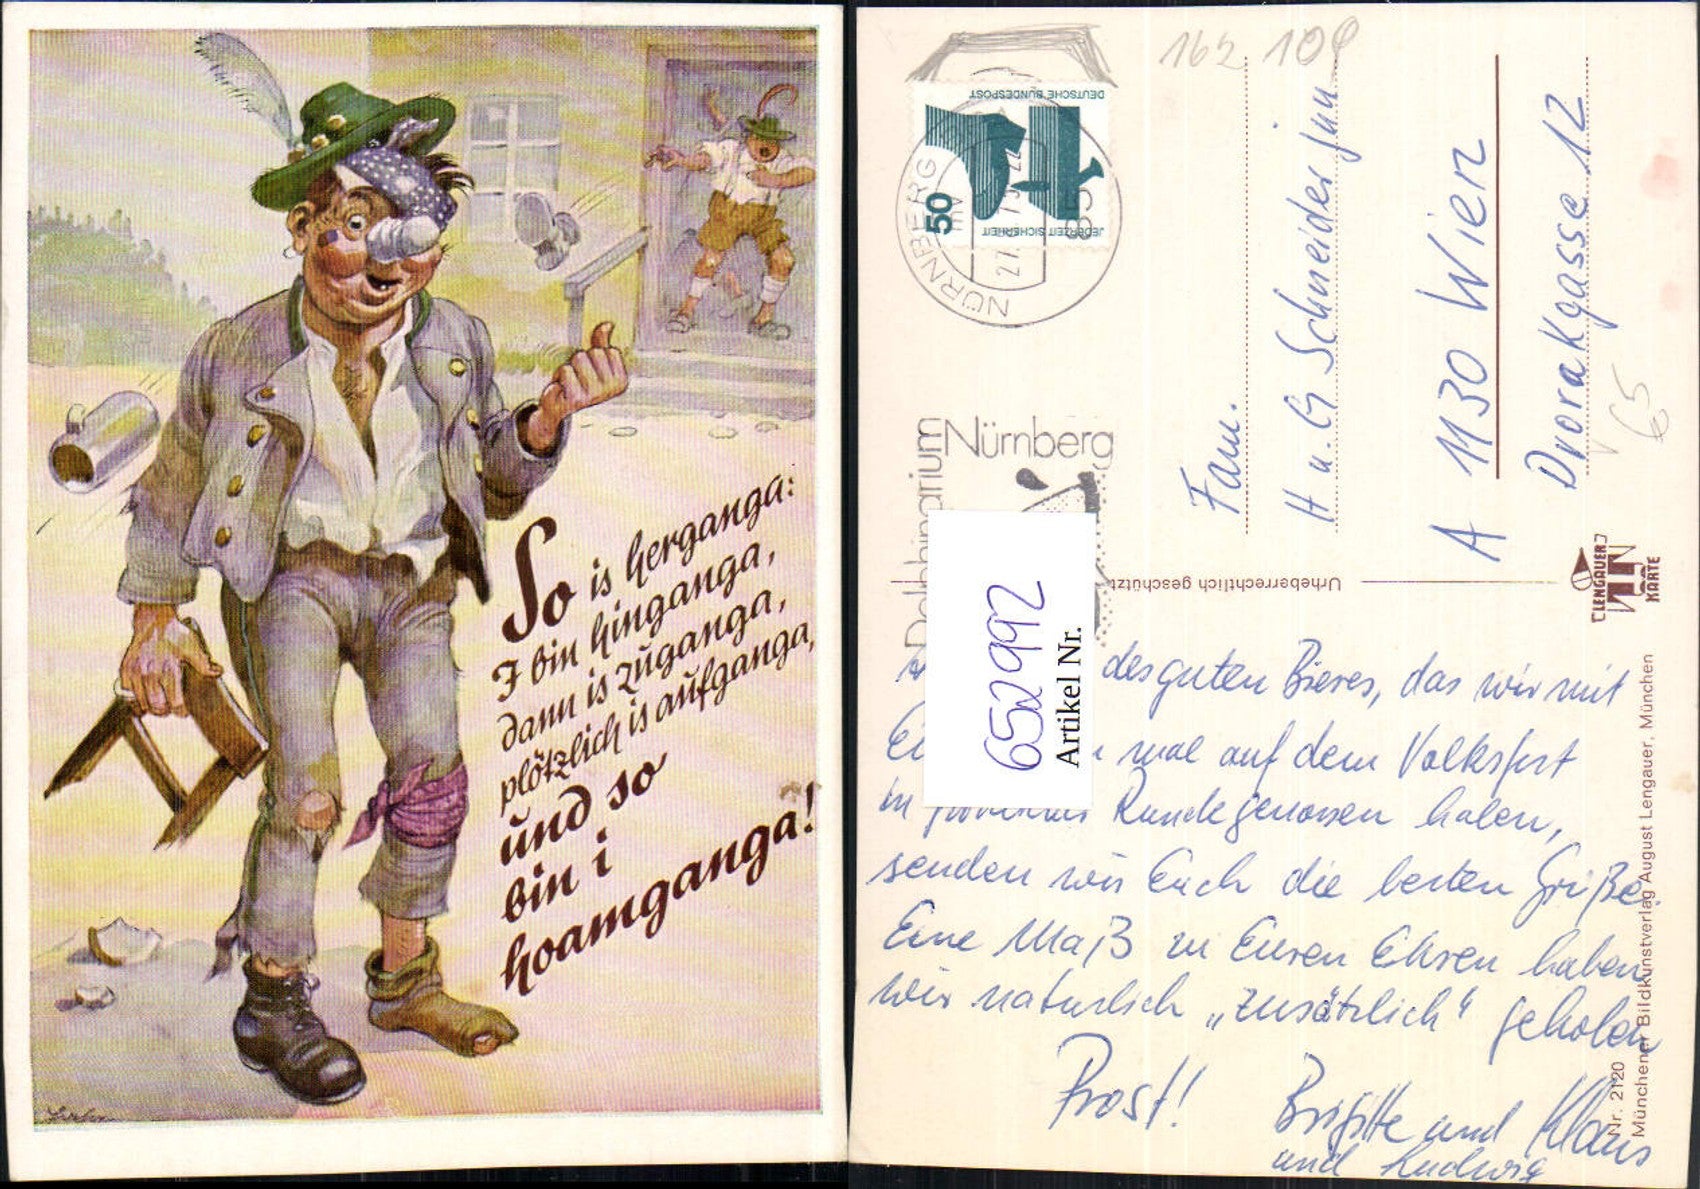 So is herganga:
I bin hinganga,
dann is zuganga,
plötzlich is aufganga,
und so
bin i
hoamganga!
162 109
DEUTSCHE BUNDESPOST
JEDERZEIT SICHERHEIT
50
NÜRNBERG
Nürnberg
Delphinarium
Fam.
H u. G Schneider jun.
A 1130 Wien
Dvorakgasse 12
65
Urheberrechtlich geschützt
LENGAUER
KARTE
652992
Artikel Nr.
des guten Bieres, das wir mit
mal auf dem Volksfest
in Rundegenossen haben,
senden wir Euch die besten Grüße
Eine Maß zu Euren Ehren haben
wir natürlich „zusätzlich“ geholen
Prost!
Brigitte und Klaus
und Ludwig
Nr. 2120
Münchener Bildkunstverlag August Lengauer, München